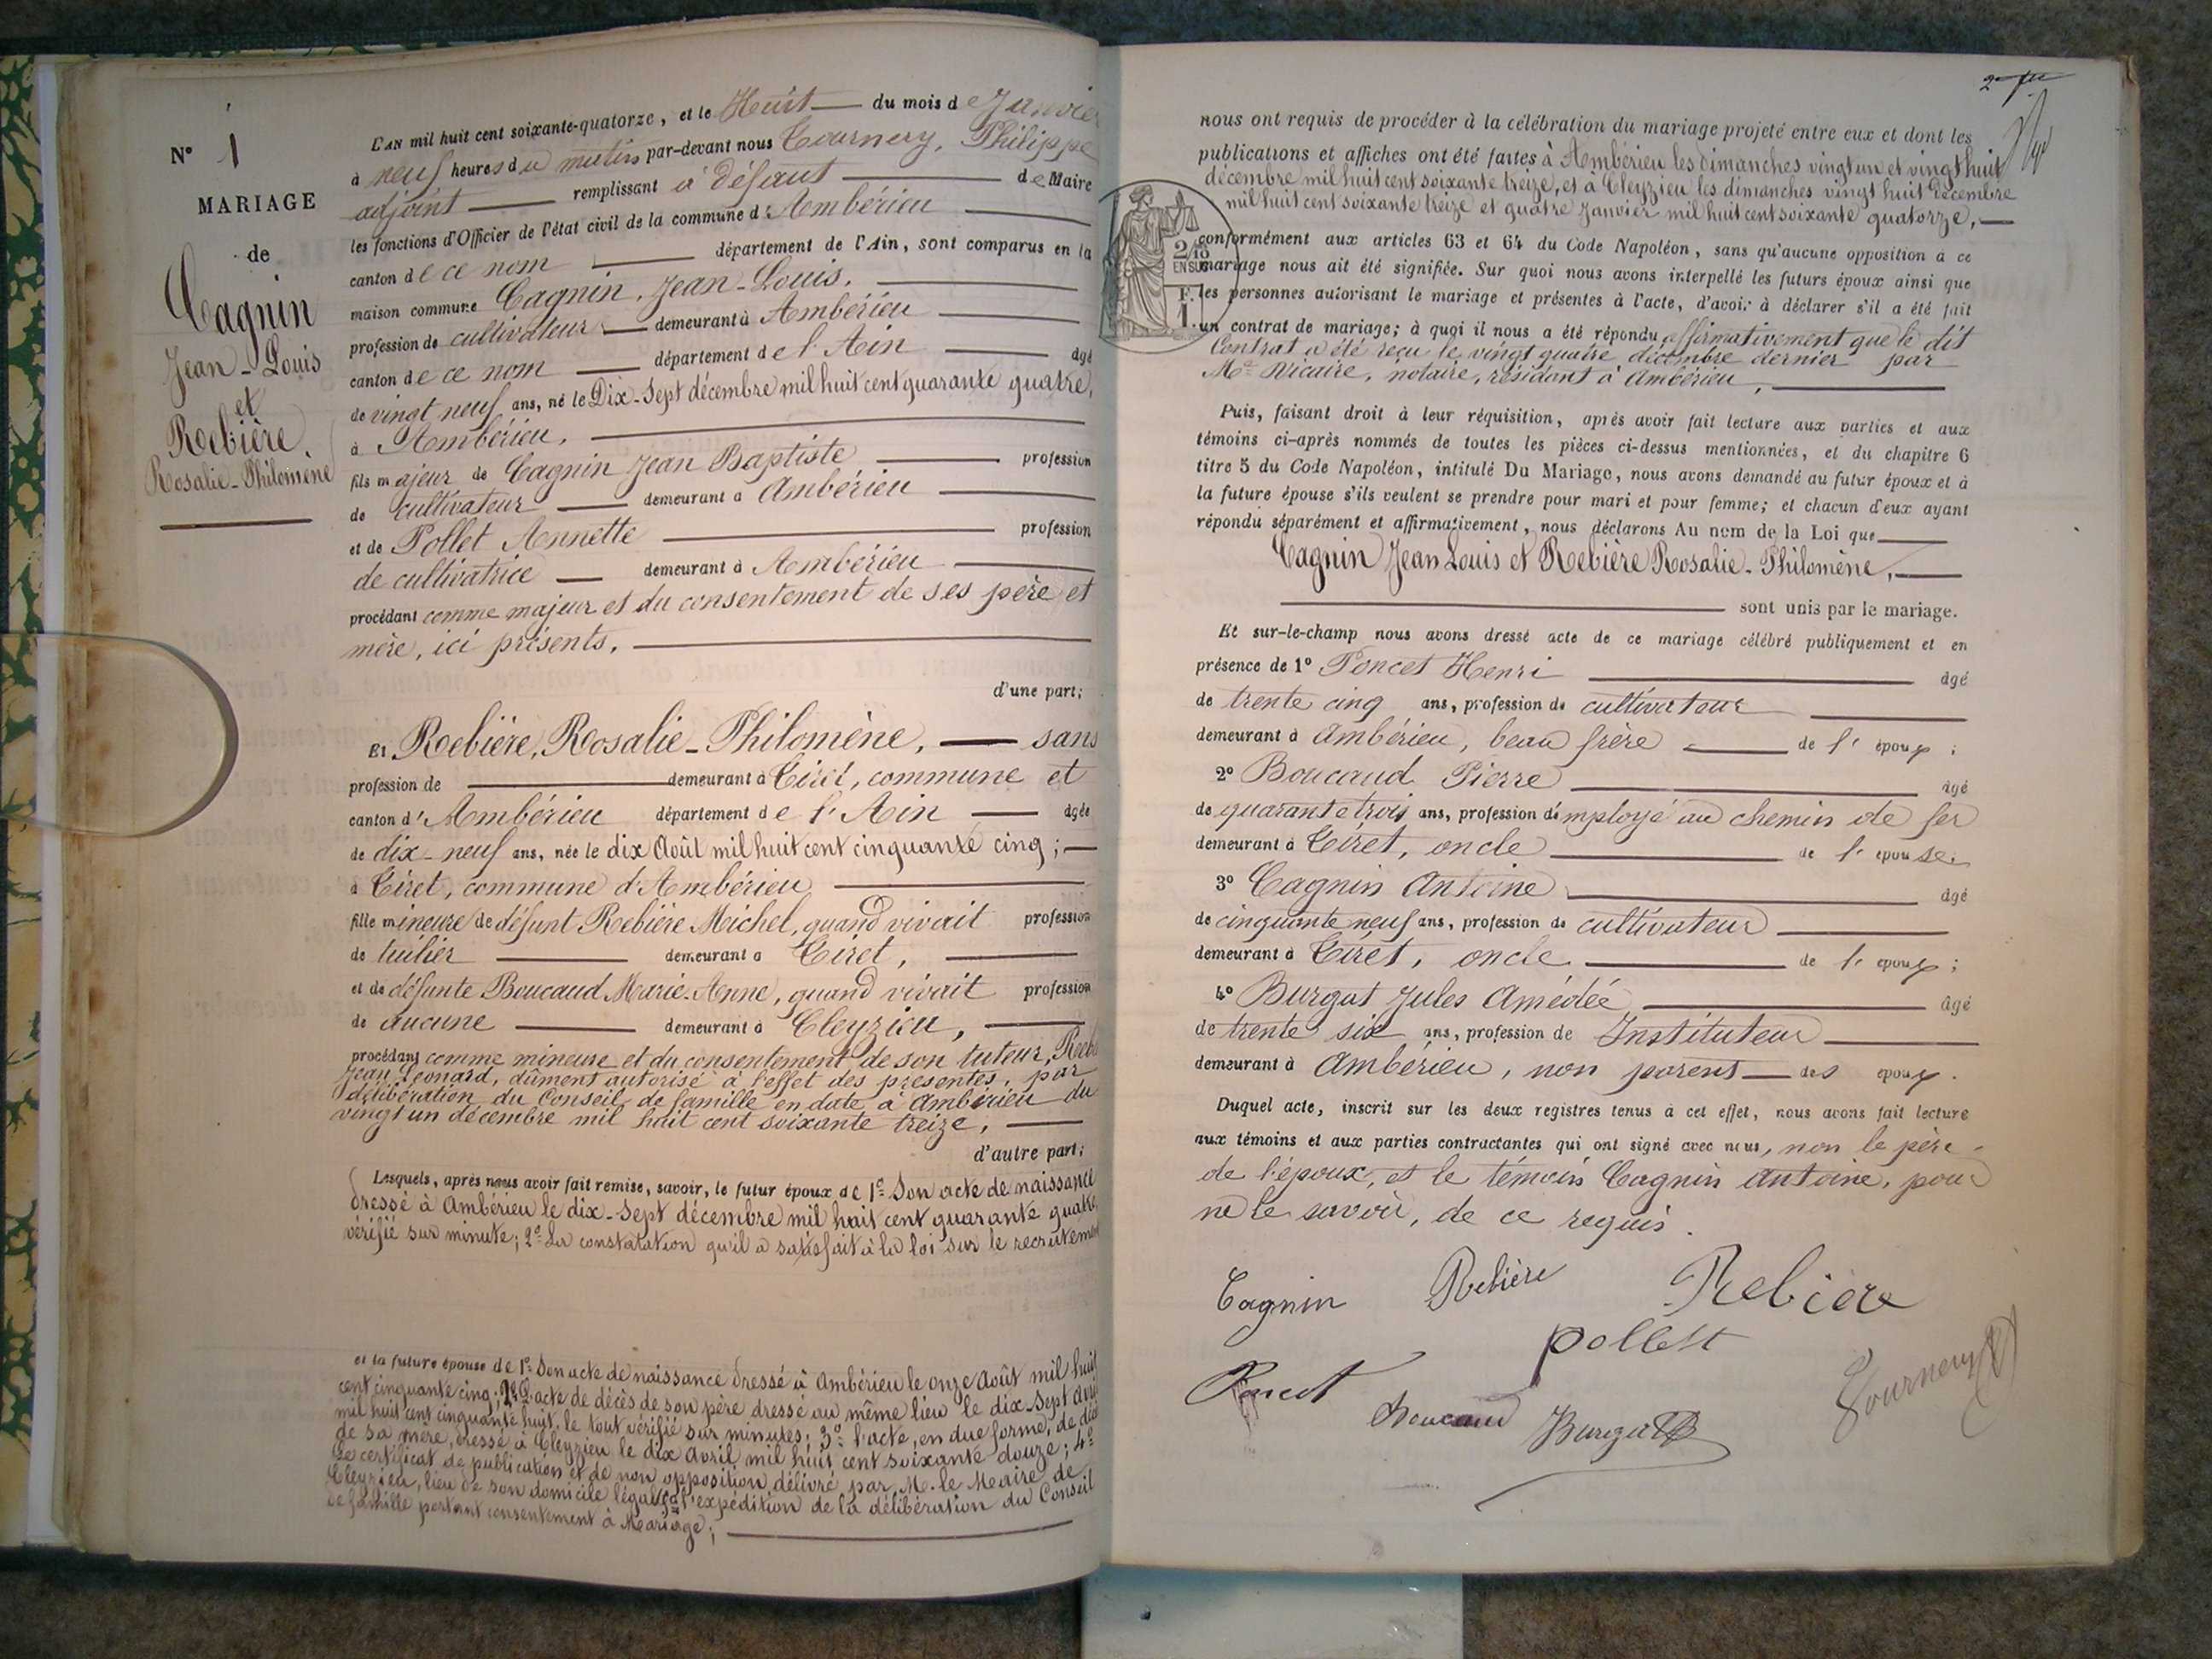 N° 1
MARIAGE
de
Cagnin
Jean-Louis
et
Rebière,
Rosalie-Philomène
L'AN mil huit cent soixante-quatorze, et le Huit du mois de Janvier
à neuf heures du matin par-devant nous Tournery, Philippe
adjoint remplissant à défaut de Maire
les fonctions d'Officier de l'état civil de la commune d'Ambérieu
canton de ce nom département de l'Ain, sont comparus en la
maison commune Cagnin, Jean-Louis,
profession de cultivateur demeurant à Ambérieu
canton de ce nom département de l'Ain âgé
de vingt neuf ans, né le Dix-Sept décembre mil huit cent quarante quatre,
à Ambérieu,
fils majeur de Cagnin Jean Baptiste profession
de cultivateur demeurant à Ambérieu
et de Pollet Annette profession
de cultivatrice demeurant à Ambérieu
procédant comme majeur et du consentement de ses père et
mère, ici présents,
d'une part;
Et Rebière, Rosalie-Philomène, sans
profession de demeurant à Tiret, commune et
canton d'Ambérieu département de l'Ain âgée
de dix-neuf ans, née le dix Août mil huit cent cinquante cinq;
à Tiret, commune d'Ambérieu
fille mineure de défunt Rebière Michel, quand vivait profession
de tuilier demeurant à Tiret,
et de défunte Boucaud Marie-Anne, quand vivait profession
de aucune demeurant à Cleyzieu,
procédant comme mineure et du consentement de son tuteur,
Jean Léonard, dûment autorisé à l'effet des présentes, par
délibération du Conseil de famille en date à Ambérieu du
vingt un décembre mil huit cent soixante treize,
d'autre part;
Lesquels, après nous avoir fait remise, savoir, le futur époux de 1° Son acte de naissance
dressé à Ambérieu le dix-sept décembre mil huit cent quarante quatre
vérifié sur minute; 2° La constatation qu'il a satisfait à la loi sur le recrutement
et la future épouse de 1° Son acte de naissance dressé à Ambérieu le onze Août mil huit
cent cinquante cinq; 2° L'acte de décès de son père dressé au même lieu le dix-sept
mil huit cent cinquante huit, le tout vérifié sur minutes; 3° l'acte, en due forme, de
de sa mère, dressé à Cleyzieu le dix Avril mil huit cent soixante douze; 4°
Le certificat de publication et de non opposition délivré par M. le Maire de
Cleyzieu, lieu de son domicile légal; 5° l'expédition de la délibération du Conseil
de famille portant consentement à Mariage;
nous ont requis de procéder à la célébration du mariage projeté entre eux et dont les
publications et affiches ont été faites à Ambérieu les dimanches vingt un et vingt huit
décembre mil huit cent soixante treize, et à Cleyzieu les dimanches vingt huit Décembre
mil huit cent soixante treize et quatre Janvier mil huit cent soixante quatorze,
conformément aux articles 63 et 64 du Code Napoléon, sans qu'aucune opposition à ce
2/10
EN SUS
mariage nous ait été signifiée. Sur quoi nous avons interpellé les futurs époux ainsi que
F.
1.
les personnes autorisant le mariage et présentes à l'acte, d'avoir à déclarer s'il a été fait
un contrat de mariage; à quoi il nous a été répondu affirmativement que le dit
Contrat a été reçu le vingt quatre décembre dernier par
Me Vicaire, notaire, résidant à Ambérieu,
Puis, faisant droit à leur réquisition, après avoir fait lecture aux parties et aux
témoins ci-après nommés de toutes les pièces ci-dessus mentionnées, et du chapitre 6
titre 5 du Code Napoléon, intitulé Du Mariage, nous avons demandé au futur époux et à
la future épouse s'ils veulent se prendre pour mari et pour femme; et chacun d'eux ayant
répondu séparément et affirmativement, nous déclarons Au nom de la Loi que
Cagnin Jean Louis et Rebière Rosalie-Philomène,
sont unis par le mariage.
Et sur-le-champ nous avons dressé acte de ce mariage célébré publiquement et en
présence de 1° Poncet Henri âgé
de trente cinq ans, profession de cultivateur
demeurant à Ambérieu, beau frère de l'époux;
2° Boucaud Pierre âgé
de quarante trois ans, profession d'employé au chemin de fer
demeurant à Tiret, oncle de l'épouse;
3° Cagnin Antoine âgé
de cinquante neuf ans, profession de cultivateur
demeurant à Tiret, oncle de l'époux;
4° Burgat Jules Amédée âgé
de trente six ans, profession de Instituteur
demeurant à Ambérieu, non parent des époux.
Duquel acte, inscrit sur les deux registres tenus à cet effet, nous avons fait lecture
aux témoins et aux parties contractantes qui ont signé avec nous, non le père
de l'époux, et le témoin Cagnin Antoine, pour
ne le savoir, de ce requis.
Cagnin Rebière Rebière
pollest
Poncet Boucaud Burgat Tournery